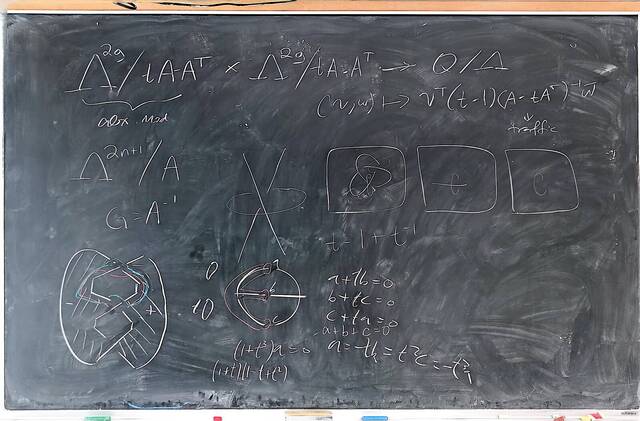 Λ^{2g}/tA-A^T × Λ^{2g}/tA-A^T → Q/Λ
alex. mod
(v,w) ↦ v^T(t-1)(A-tA^T)^{-1}w
traffic
Λ^{2n+1}/A
G=A^{-1}
t-1+t^{-1}
a+tb=0
b+tc=0
c+ta=0
a+b+c=0
a=-tb=t²c=-t³
(1+t³)a=0
(1+t)(1-t+t²)